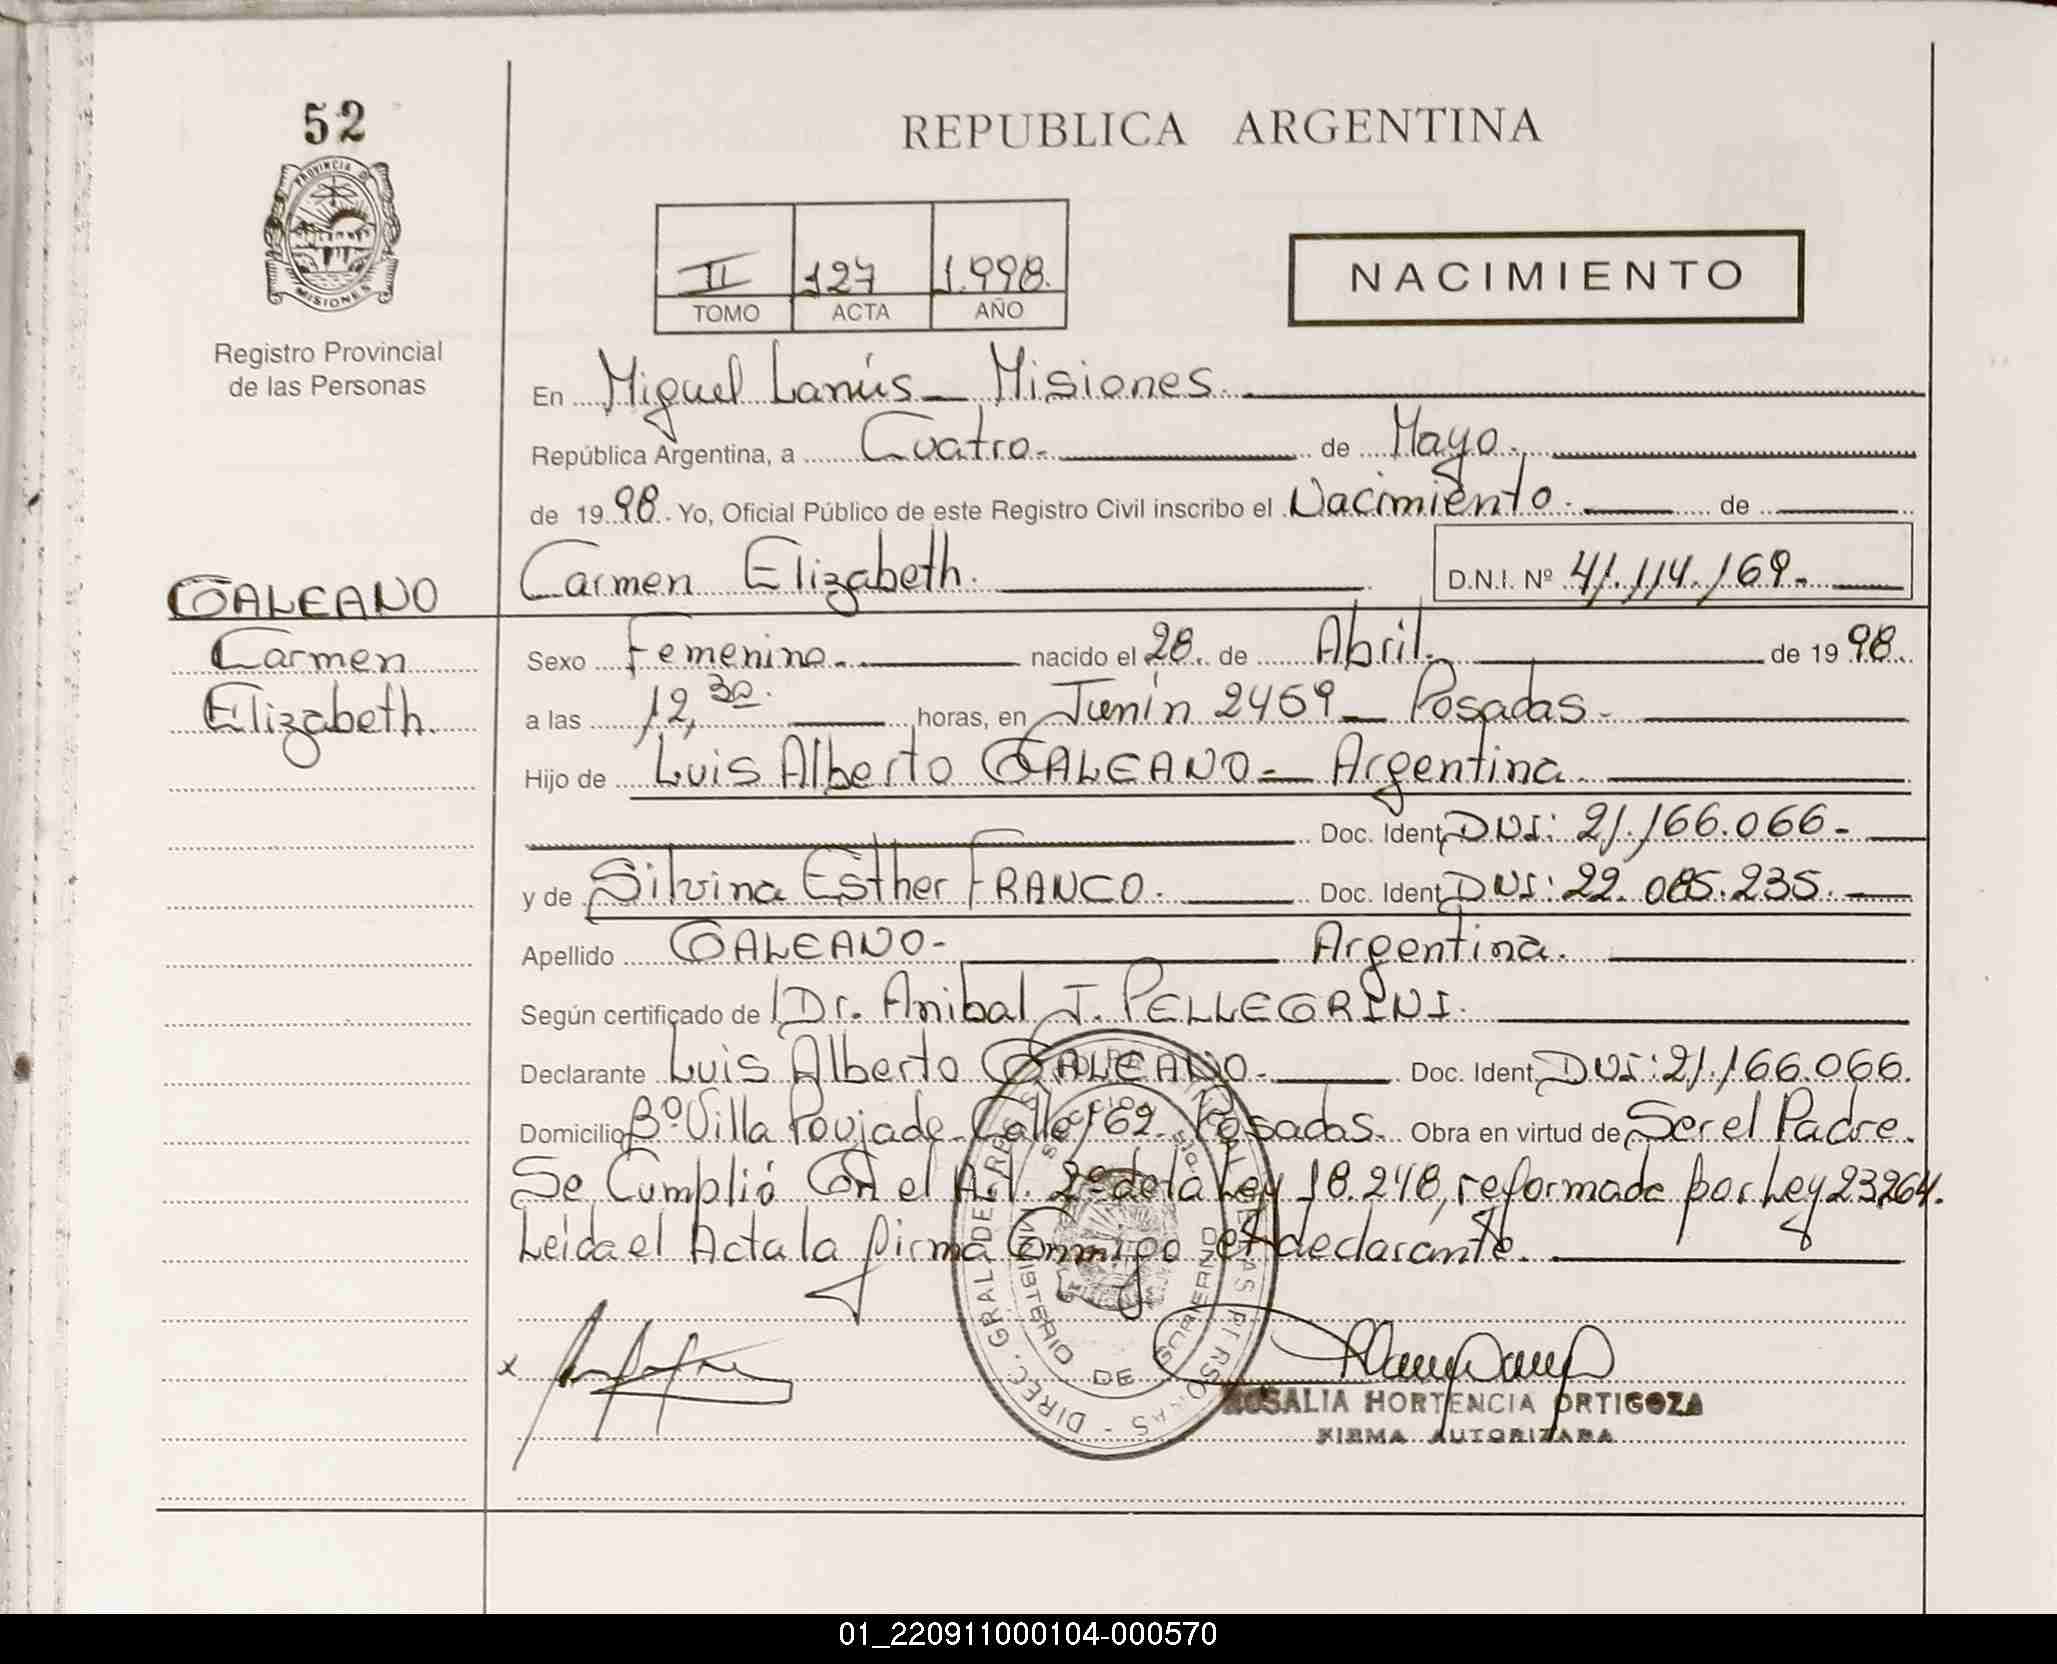 52
PROVINCIA DE
MISIONES
Registro Provincial
de las Personas
REPUBLICA ARGENTINA
II 127 1.998.
TOMO ACTA AÑO
NACIMIENTO
En Miguel Lanús - Misiones.
República Argentina, a Cuatro. de Mayo.
de 1998. Yo, Oficial Público de este Registro Civil inscribo el Nacimiento. de
GALEANO
Carmen Elizabeth. D.N.I. Nº 41.114.169.
Carmen
Elizabeth.
Sexo Femenino. nacido el 28. de Abril. de 1998.
a las 12,30. horas, en Junín 2459 - Posadas.
Hijo de Luis Alberto GALEANO - Argentina.
Doc. Ident. DNI: 21.166.066.
y de Silvina Esther FRANCO. Doc. Ident. DNI: 22.085.235.
Apellido GALEANO- Argentina.
Según certificado de Dr. Anibal J. PELLEGRINI.
Declarante Luis Alberto GALEANO. Doc. Ident. DNI: 21.166.066.
Domicilio Bº Villa Poujade - Calle 162 - Posadas. Obra en virtud de Ser el Padre.
Se Cumplió Con el Art. 2º de la Ley 18.248, reformada por Ley 23264.
Leida el Acta la firma Conmigo el declarante.
DIREC. GRAL. DE
MINISTERIO DE GOBIERNO
x
ROSALIA HORTENCIA ORTIGOZA
FIRMA AUTORIZADA
01_220911000104-000570